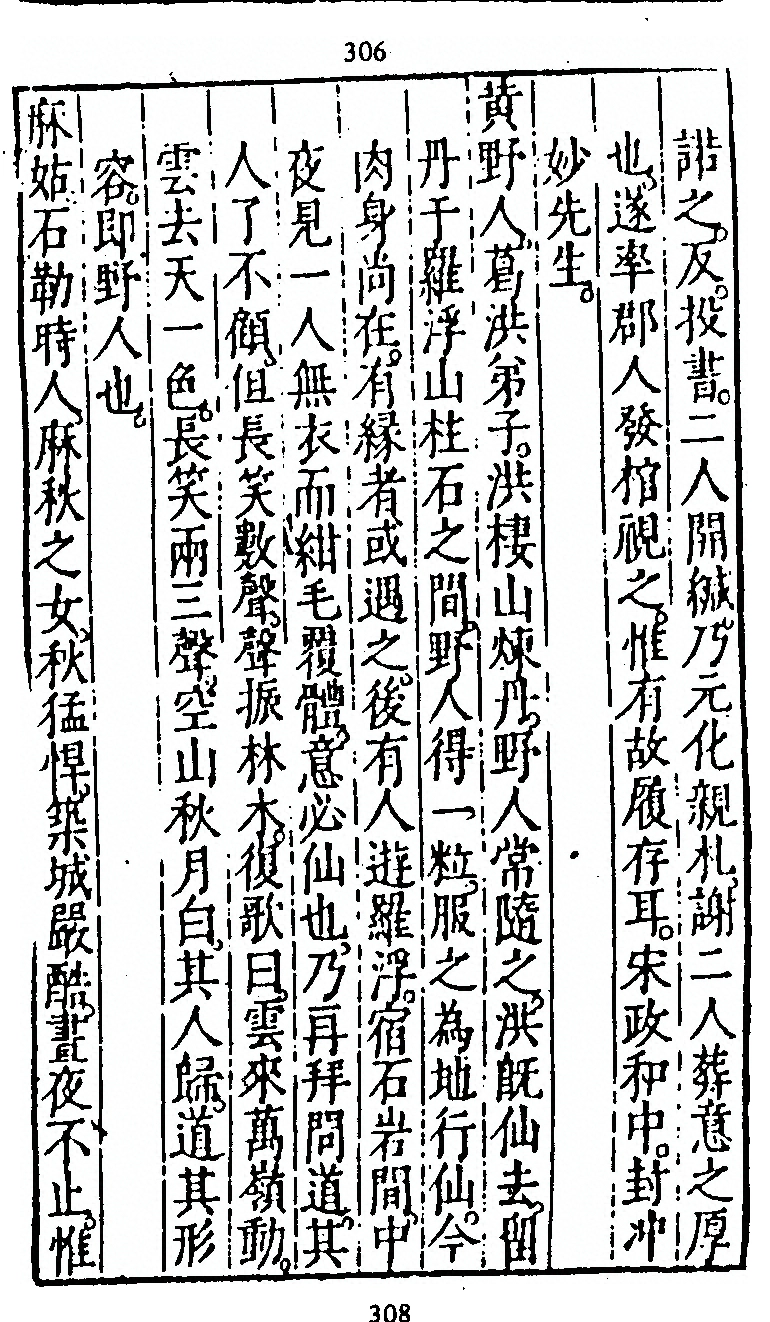 306
詣之。及。投書。二人開緘。乃元化親札。謝二人葬意之厚
也。遂率郡人發棺視之。惟有故履存耳。宋政和中。封冲
妙先生。
黄野人。葛洪弟子。洪棲山煉丹。野人常隨之。洪既仙去。留
丹于羅浮山柱石之間。野人得一粒。服之為地行仙。今
肉身尚在。有縁者或遇之。後有人遊羅浮。宿石岩間。中
夜見一人無衣而紺毛覆體。意必仙也。乃再拜問道。其
人了不顧。但長笑數聲。聲振林木。復歌曰。雲來萬嶺動。
雲去天一色。長笑兩三聲。空山秋月白。其人歸。道其形
容。即野人也。
麻姑。石勒時人。麻秋之女。秋猛悍。築城嚴酷。晝夜不止。惟
308